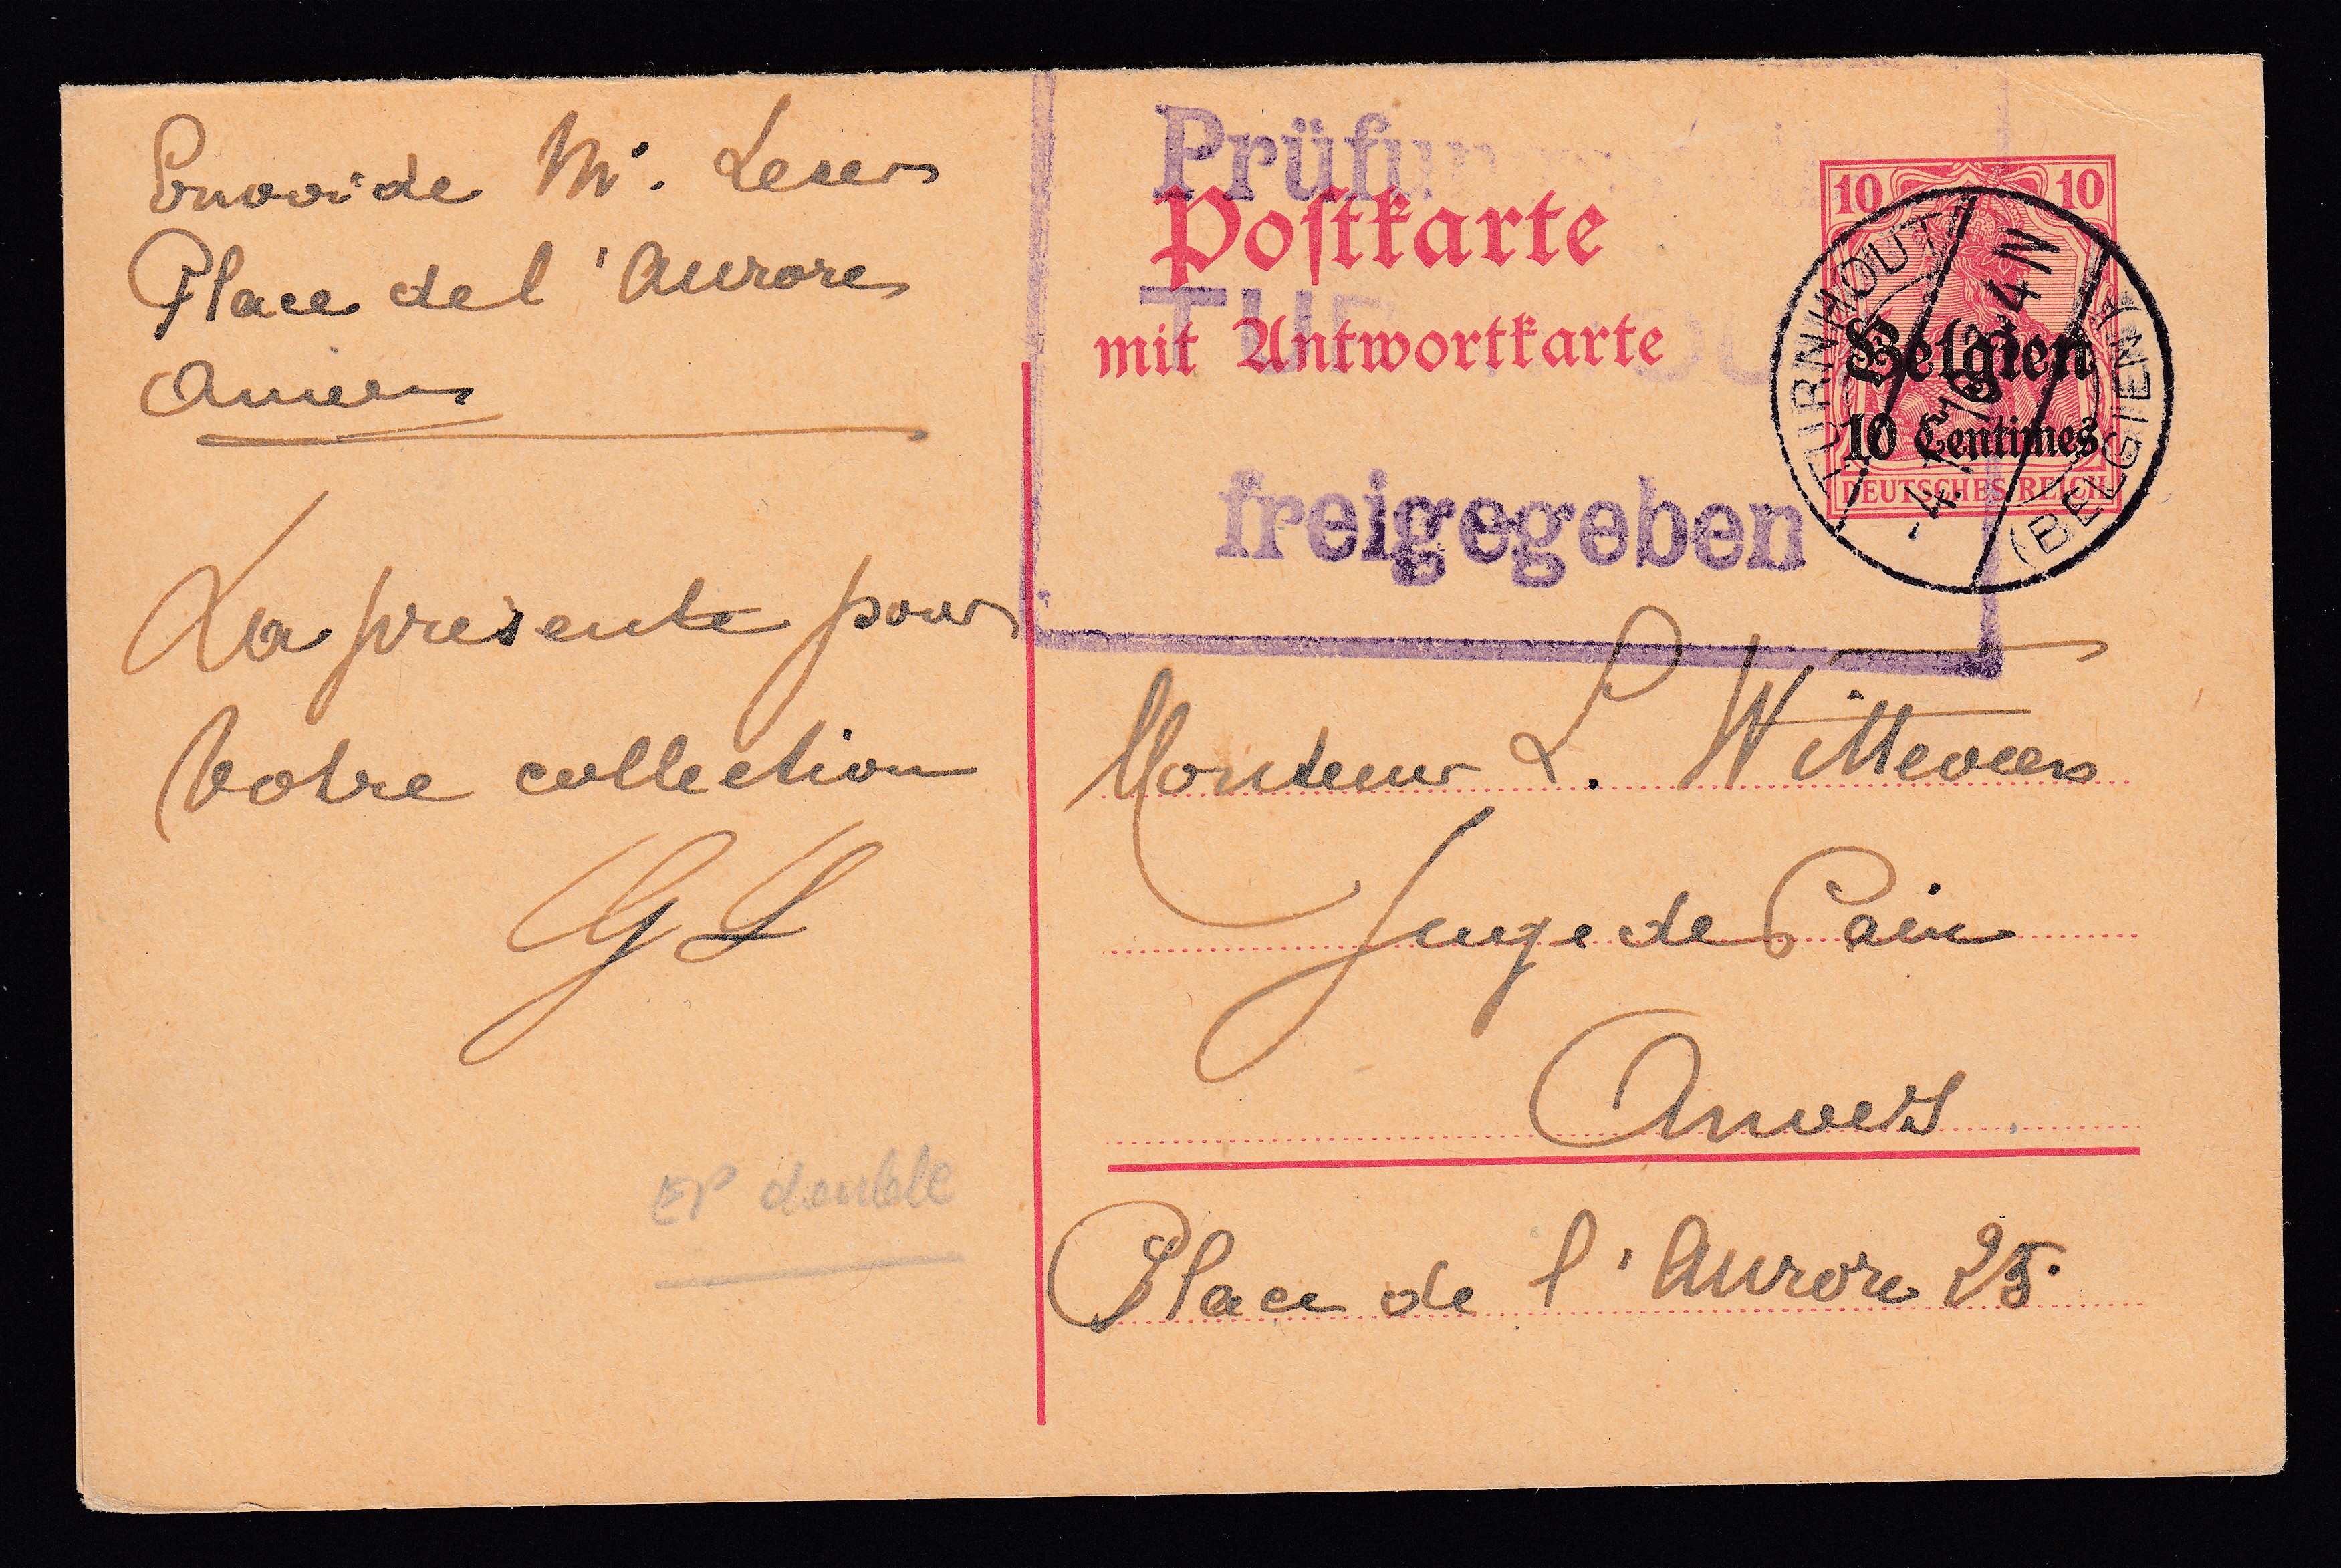 Envoi de Mr. Leser
Place de l'Aurore
Anvers
La presente pour
Votre collection
GL
EP double
Prüfun
Postkarte
TU OU
mit Antwortkarte
freigegeben
10 10
Belgien
10 Centimes
DEUTSCHES REICH
TURNHOUT
(BELGIEN)
Monsieur L. Witteveen
Juge de Paix
Anvers
Place de l'Aurore 25.